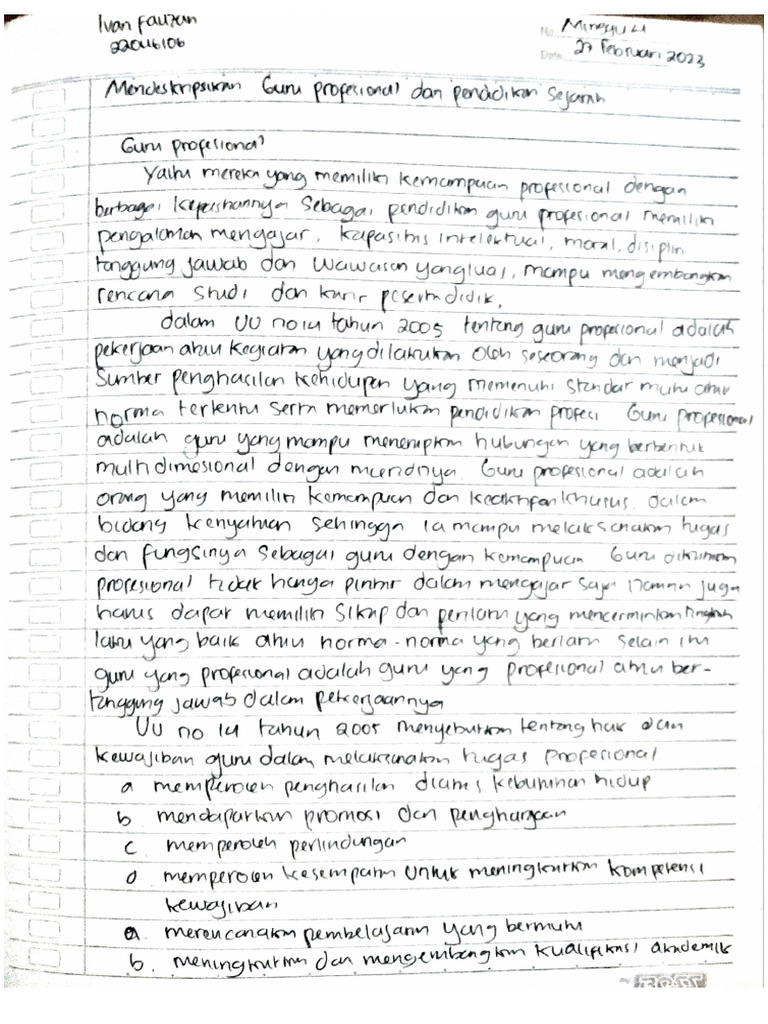 Ivan Fauzan
22046106
No. Minggu 4
Date. 27 Februari 2023
Mendeskripsikan Guru profesional dan pendidikan Sejarah
Guru profesional
Yaitu mereka yang memiliki kemampuan profesional dengan
berbagai kapasitasnya sebagai pendidikan guru profesional memiliki
pengalaman mengajar, kapasitas intelektual, moral, disiplin
tanggung jawab dan wawasan yang luas, mampu mengembangkan
rencana studi dan karir peserta didik.
dalam UU no 14 tahun 2005 tentang guru profesional adalah
pekerjaan atau kegiatan yang dilakukan oleh seseorang dan menjadi
Sumber penghasilan kehidupan yang memenuhi standar mutu atau
norma tertentu serta memerlukan pendidikan profesi Guru profesional
adalah guru yang mampu menerapkan hubungan yang berbentuk
multi dimesional dengan muridnya Guru profesional adalah
orang yang memiliki kemampuan dan keaktifan khusus dalam
bidang kenyahuan sehingga ia mampu melaksanakan tugas
dan fungsinya sebagai guru dengan kemampuan Guru dikatakan
profesional tidak hanya pintar dalam mengajar saja naman juga
harus dapat memiliki sikap dan perilaku yang mencerminkan tingkah
laku yang baik atau norma-norma yang berlaku selain itu
guru yang profesional adalah guru yang profesional atau ber-
tanggung jawab dalam pekerjaannya
UU no 14 tahun 2005 menyebutkan tentang hak dan
kewajiban guru dalam melaksanakan tugas profesional
a memperoleh penghasilan diatas kebutuhan hidup
b mendapatkan promosi dan penghargaan
c memperoleh perlindungan
d memperoleh kesempatan untuk meningkatkan kompetensi
kewajiban
a. merencanakan pembelajaran yang bermutu
b. meningkatkan dan mengembangkan kualifikasi akademik